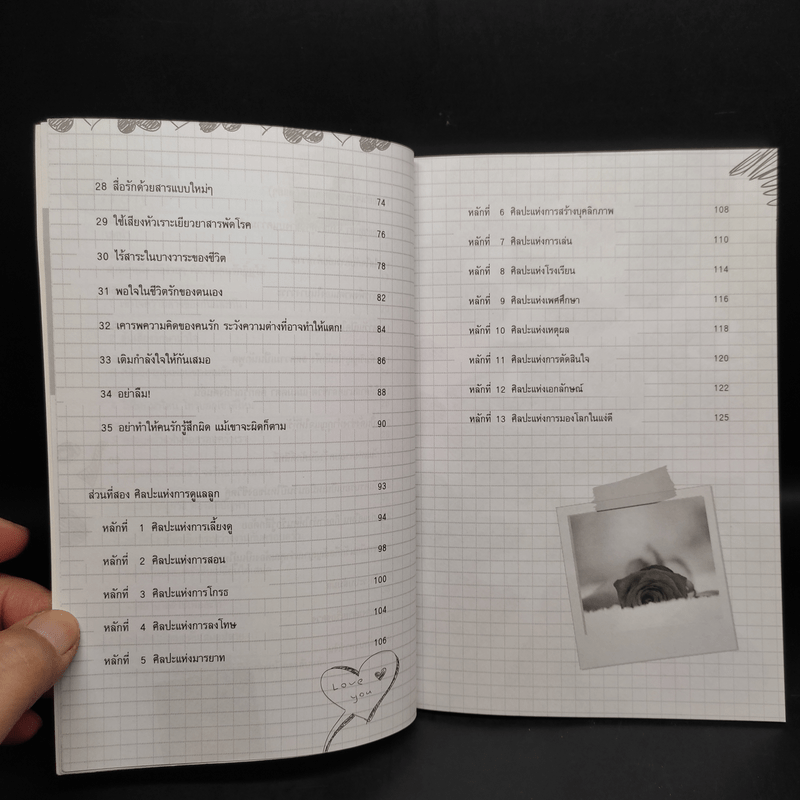 28 สื่อรักด้วยสารแบบใหม่ๆ 74
29 ใช้เสียงหัวเราะเยียวยาสารพัดโรค 76
30 ไร้สาระในบางวาระของชีวิต 78
31 พอใจในชีวิตรักของตนเอง 82
32 เคารพความคิดของคนรัก ระวังความต่างที่อาจทำให้แตก! 84
33 เติมกำลังใจให้กันเสมอ 86
34 อย่าลืม! 88
35 อย่าทำให้คนรักรู้สึกผิด แม้เขาจะผิดก็ตาม 90
ส่วนที่สอง ศิลปะแห่งการดูแลลูก 93
หลักที่ 1 ศิลปะแห่งการเลี้ยงดู 94
หลักที่ 2 ศิลปะแห่งการสอน 98
หลักที่ 3 ศิลปะแห่งการโกรธ 100
หลักที่ 4 ศิลปะแห่งการลงโทษ 104
หลักที่ 5 ศิลปะแห่งมารยาท 106
Love
you
หลักที่ 6 ศิลปะแห่งการสร้างบุคลิกภาพ 108
หลักที่ 7 ศิลปะแห่งการเล่น 110
หลักที่ 8 ศิลปะแห่งโรงเรียน 114
หลักที่ 9 ศิลปะแห่งเพศศึกษา 116
หลักที่ 10 ศิลปะแห่งเหตุผล 118
หลักที่ 11 ศิลปะแห่งการตัดสินใจ 120
หลักที่ 12 ศิลปะแห่งเอกลักษณ์ 122
หลักที่ 13 ศิลปะแห่งการมองโลกในแง่ดี 125